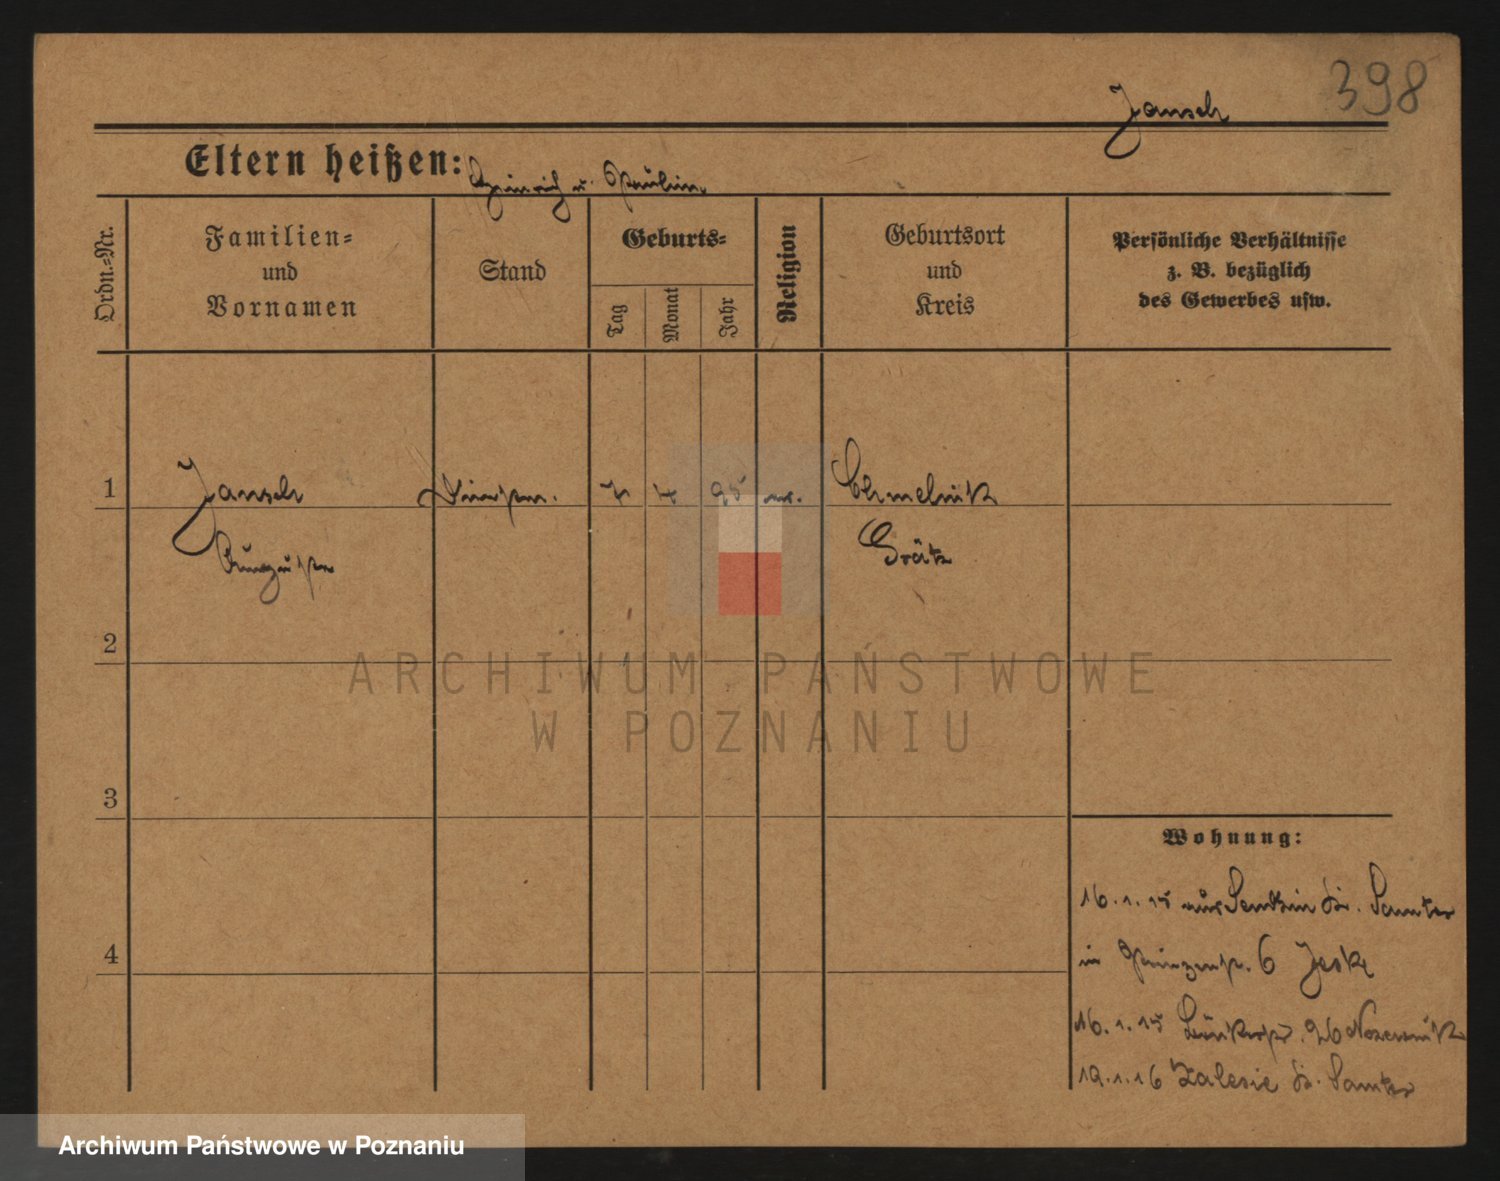 398
Jansch
Eltern heißen: Heinrich u. Paulin
Ordn.-Nr.
Familien-
und
Vornamen
Stand
Geburts-
Tag
Monat
Jahr
Religion
Geburtsort
und
Kreis
Persönliche Verhältnisse
z. B. bezüglich
des Gewerbes usw.
1 Jansch 7 7 95 Chmelnik
Auguste Grätz
2
ARCHIWUM PAŃSTWOWE
W POZNANIU
3
Wohnung:
16.1.15 aus Kr. Samter
4
in Prinzenstr. 6 Jeske
16.1.15 26
19.1.16 Zalesie Kr. Samter
Archiwum Państwowe w Poznaniu